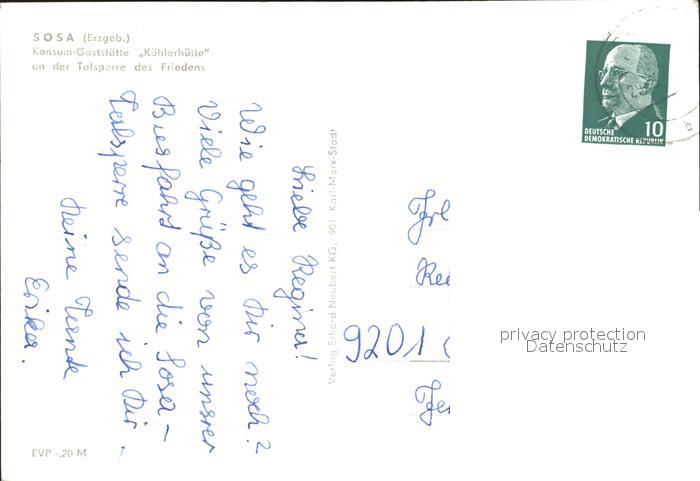 SOSA (Erzgeb.)
Konsum-Gaststätte „Köhlerhütte"
an der Talsperre des Friedens
Liebe Regina!
Wie geht es Dir noch?
Viele Grüße von unsrer
Busfahrt an die Sosa-
talsperre sende ich Dir.
Deine Tante
Erika.
Verlag Erhard Neubert KG, 901 Karl-Marx-Stadt
10
DEUTSCHE
DEMOKRATISCHE REPUBLIK
Frl
9201
privacy protection
Datenschutz
EVP -,20 M